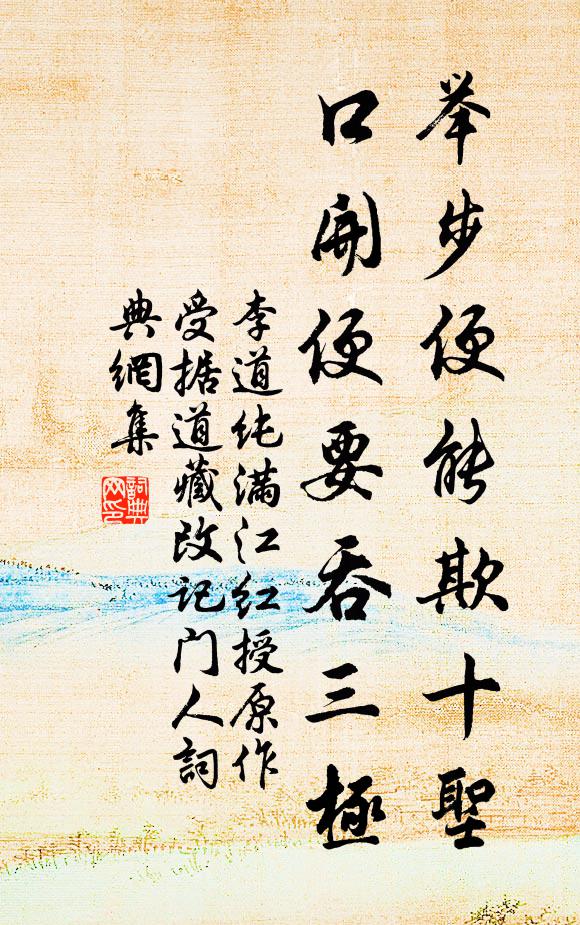 举步便能欺十聖
口開便要吞三極
李道纯满江红授原作
受据道藏改记门人詞
典網集
詞典
网印